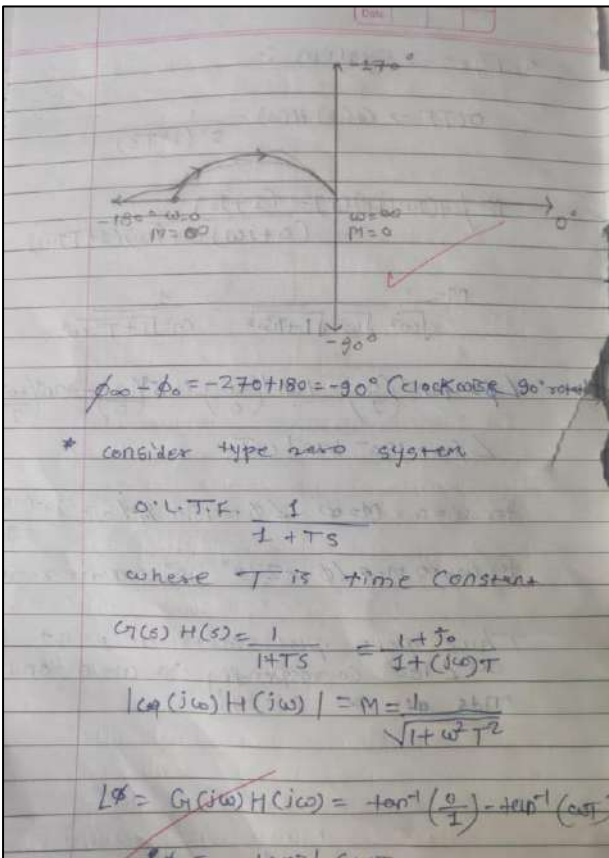 Date
-270°
-180° ω=0
M=∞
ω=∞
M=0
0°
-90°
ϕ∞ - ϕ0 = -270+180 = -90° (clockwise 90°
* consider type zero system
O.L.T.F. 1 / 1 + TS
where T is time constant
G(s) H(s) = 1 / 1+TS = 1+j0 / 1+(jω)T
|G(jω) H(jω)| = M = / √1+ω²T²
∠ϕ = G(jω) H(jω) = tan⁻¹(0/1) - tan⁻¹(ωT)